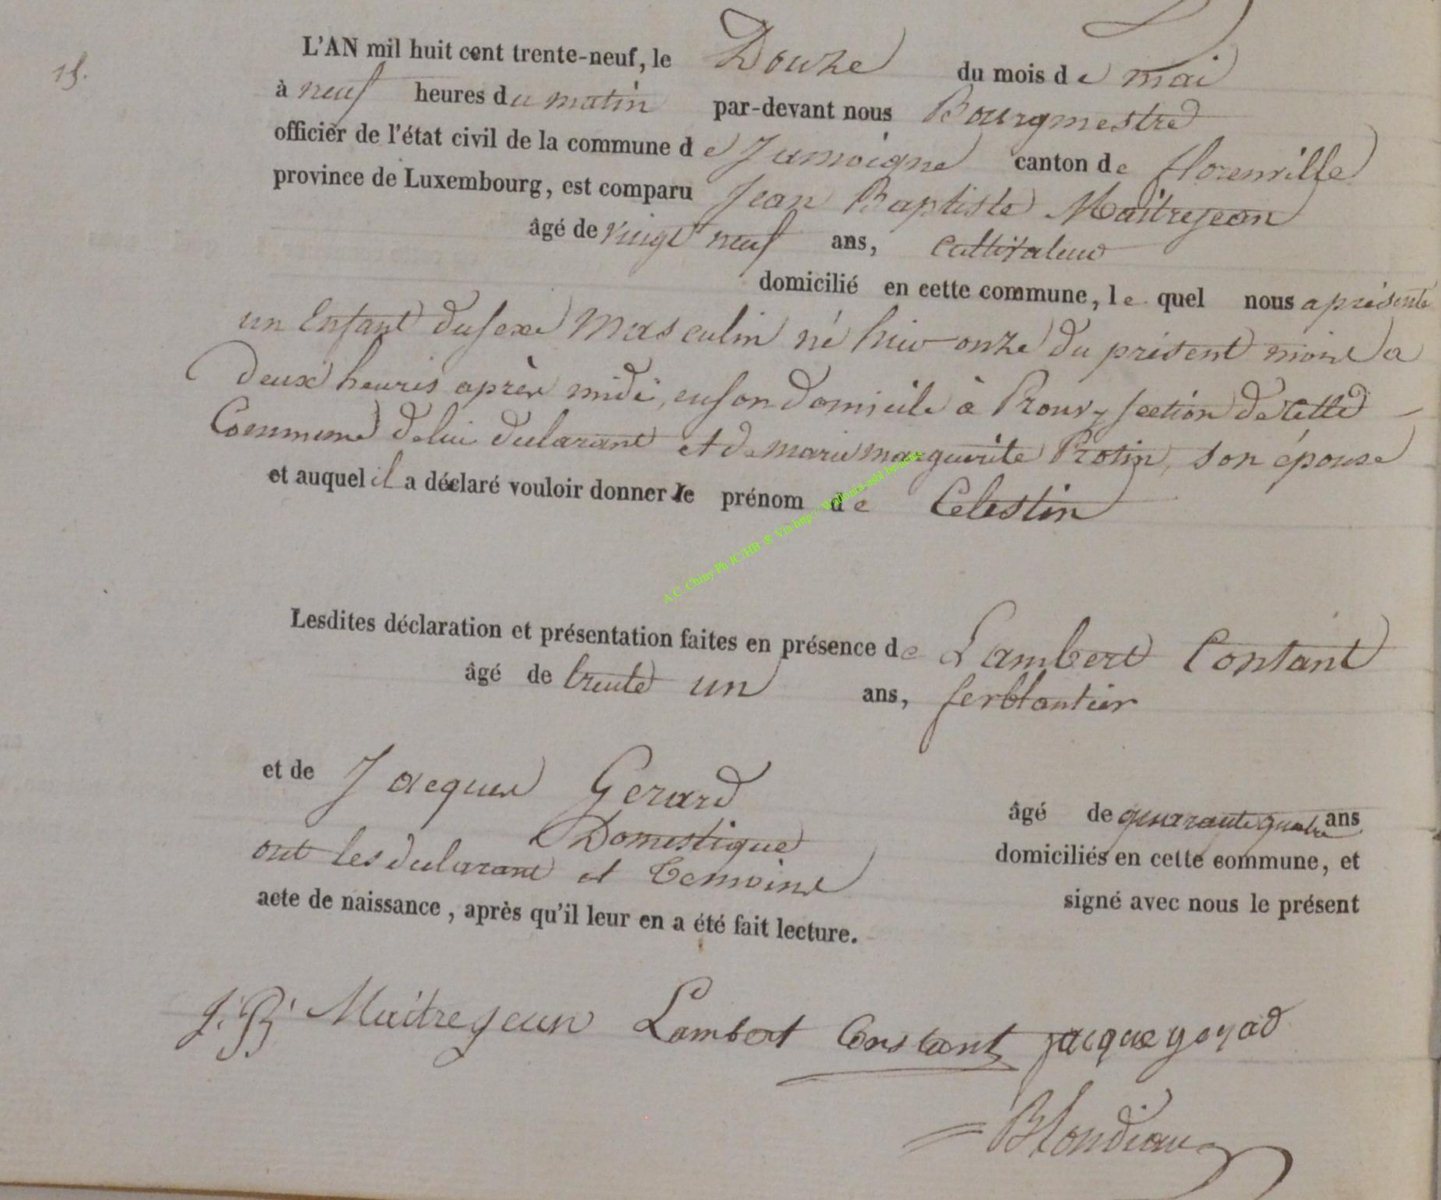 15.
L'AN mil huit cent trente-neuf, le Douze du mois de mai
à neuf heures du matin par-devant nous Bourgmestre
officier de l'état civil de la commune de Jamoigne canton de florenville
province de Luxembourg, est comparu Jean Baptiste Maîtrejean
âgé de vingt neuf ans, cultivateur
domicilié en cette commune, le quel nous a présenté
un Enfant du sexe Masculin né hier onze du présent mois a
deux heures après midi, en son domicile à Prouvy section de cette
Commune de lui declarant et de marie marguerite Protin, son épouse
et auquel il a déclaré vouloir donner le prénom de Celestin
Lesdites déclaration et présentation faites en présence de Lambert Constant
âgé de trente un ans, ferblantier
et de Jacques Gerard âgé de quarante quatre ans
Domestique domiciliés en cette commune, et
ont les declarant et temoins signé avec nous le présent
acte de naissance, après qu'il leur en a été fait lecture.
J. B. Maitrejean Lambert Constant jacque gerad
Blondiau